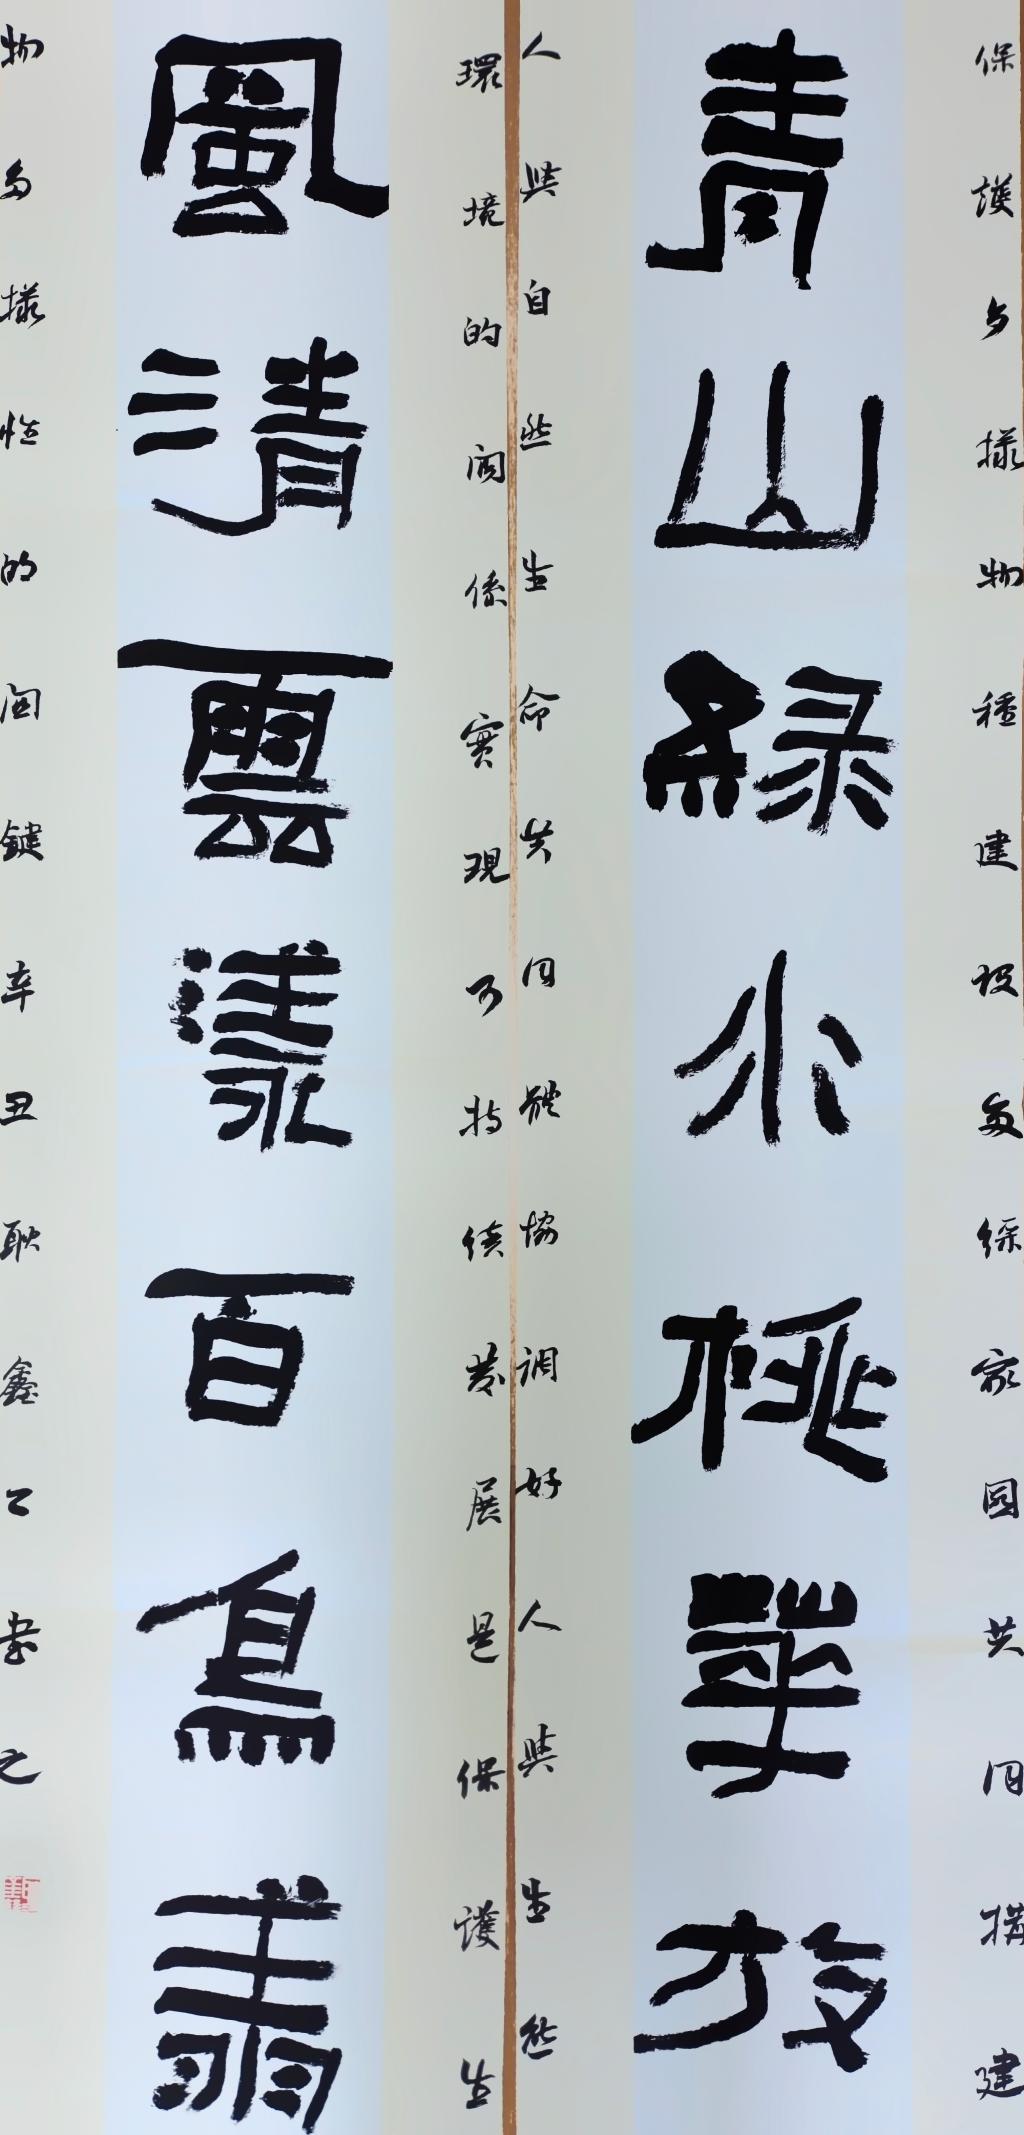 保護多樣物種建設多綵家園共同構建
青山綠水桃華放
人與自然生命共同體協調好人與生態
環境的關係實現可持續發展是保護生
風清雲漾百鳥翔
物多樣性的關鍵辛丑耿鑫書之